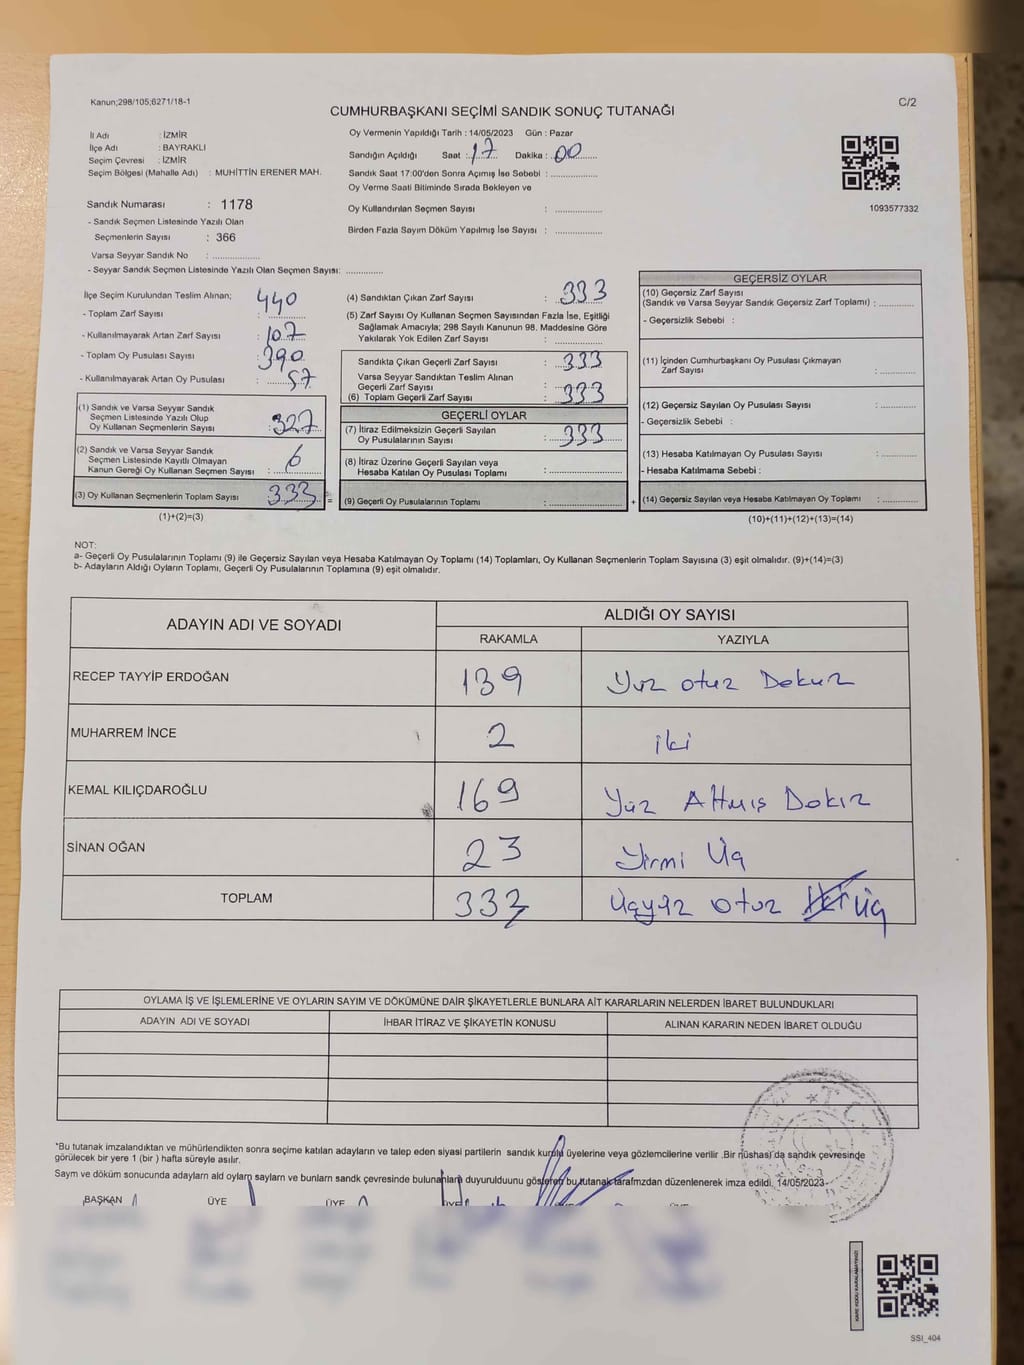 Kanun;298/105;6271/18-1
C/2
CUMHURBAŞKANI SEÇİMİ SANDIK SONUÇ TUTANAĞI
İl Adı : İZMİR
İlçe Adı : BAYRAKLI
Seçim Çevresi : İZMİR
Seçim Bölgesi (Mahalle Adı) : MUHİTTİN ERENER MAH.
Sandık Numarası : 1178
- Sandık Seçmen Listesinde Yazılı Olan
Seçmenlerin Sayısı : 366
Varsa Seyyar Sandık No : ..................
- Seyyar Sandık Seçmen Listesinde Yazılı Olan Seçmen Sayısı: ..............
Oy Vermenin Yapıldığı Tarih : 14/05/2023 Gün : Pazar
Sandığın Açıldığı Saat : 17 Dakika : 00
Sandık Saat 17:00'den Sonra Açımış İse Sebebi : ..................
Oy Verme Saati Bitiminde Sırada Bekleyen ve
Oy Kullandırılan Seçmen Sayısı : ..................
Birden Fazla Sayım Döküm Yapılmış İse Sayısı : ..................
1093577332
İlçe Seçim Kurulundan Teslim Alınan;
- Toplam Zarf Sayısı : 440
- Kullanılmayarak Artan Zarf Sayısı : 107
- Toplam Oy Pusulası Sayısı : 390
- Kullanılmayarak Artan Oy Pusulası : 57
(1) Sandık ve Varsa Seyyar Sandık
Seçmen Listesinde Yazılı Olup
Oy Kullanan Seçmenlerin Sayısı : 327
(2) Sandık ve Varsa Seyyar Sandık
Seçmen Listesinde Kayıtlı Olmayan
Kanun Gereği Oy Kullanan Seçmen Sayısı : 6
(3) Oy Kullanan Seçmenlerin Toplam Sayısı : 333 =
(1)+(2)=(3)
(4) Sandıktan Çıkan Zarf Sayısı : 333
(5) Zarf Sayısı Oy Kullanan Seçmen Sayısından Fazla İse, Eşitliği
Sağlamak Amacıyla; 298 Sayılı Kanunun 98. Maddesine Göre
Yakılarak Yok Edilen Zarf Sayısı : ..............
Sandıkta Çıkan Geçerli Zarf Sayısı : 333
Varsa Seyyar Sandıktan Teslim Alınan
Geçerli Zarf Sayısı :
(6) Toplam Geçerli Zarf Sayısı : 333
GEÇERLİ OYLAR
(7) İtiraz Edilmeksizin Geçerli Sayılan
Oy Pusulalarının Sayısı : 333
(8) İtiraz Üzerine Geçerli Sayılan veya
Hesaba Katılan Oy Pusulası Toplamı : ..................
(9) Geçerli Oy Pusulalarının Toplamı : .................. +
GEÇERSİZ OYLAR
(10) Geçersiz Zarf Sayısı
(Sandık ve Varsa Seyyar Sandık Geçersiz Zarf Toplamı) : ............
- Geçersizlik Sebebi :
(11) İçinden Cumhurbaşkanı Oy Pusulası Çıkmayan
Zarf Sayısı : ............
(12) Geçersiz Sayılan Oy Pusulası Sayısı : ............
- Geçersizlik Sebebi :
(13) Hesaba Katılmayan Oy Pusulası Sayısı : ............
- Hesaba Katılmama Sebebi :
(14) Geçersiz Sayılan veya Hesaba Katılmayan Oy Toplamı : ............
(10)+(11)+(12)+(13)=(14)
NOT:
a- Geçerli Oy Pusulalarının Toplamı (9) ile Geçersiz Sayılan veya Hesaba Katılmayan Oy Toplamı (14) Toplamları, Oy Kullanan Seçmenlerin Toplam Sayısına (3) eşit olmalıdır. (9)+(14)=(3)
b- Adayların Aldığı Oyların Toplamı, Geçerli Oy Pusulalarının Toplamına (9) eşit olmalıdır.
ADAYIN ADI VE SOYADI ALDIĞI OY SAYISI
RAKAMLA YAZIYLA
RECEP TAYYİP ERDOĞAN 139 Yüz otuz Dokuz
MUHARREM İNCE 2 iki
KEMAL KILIÇDAROĞLU 169 Yüz Altmış Dokuz
SİNAN OĞAN 23 Yirmi Üç
TOPLAM 333 Üçyüz otuz üç
OYLAMA İŞ VE İŞLEMLERİNE VE OYLARIN SAYIM VE DÖKÜMÜNE DAİR ŞİKAYETLERLE BUNLARA AİT KARARLARIN NELERDEN İBARET BULUNDUKLARI
ADAYIN ADI VE SOYADI İHBAR İTİRAZ VE ŞİKAYETİN KONUSU ALINAN KARARIN NEDEN İBARET OLDUĞU
*Bu tutanak imzalandıktan ve mühürlendikten sonra seçime katılan adayların ve talep eden siyasi partilerin sandık kurulu üyelerine veya gözlemcilerine verilir .Bir nüshası da sandık çevresinde
görülecek bir yere 1 (bir ) hafta süreyle asılır.
Sayım ve döküm sonucunda adayların aldı oyların sayları ve bunların sandk çevresinde bulunanlara duyurulduunu gösteren bu tutanak tarafmzdan düzenlenerek imza edildi, 14/05/2023
BAŞKAN ÜYE ÜYE ÜYE ÜYE ÜYE
KARE KODU KARALAMAYINIZ!
SSI_404